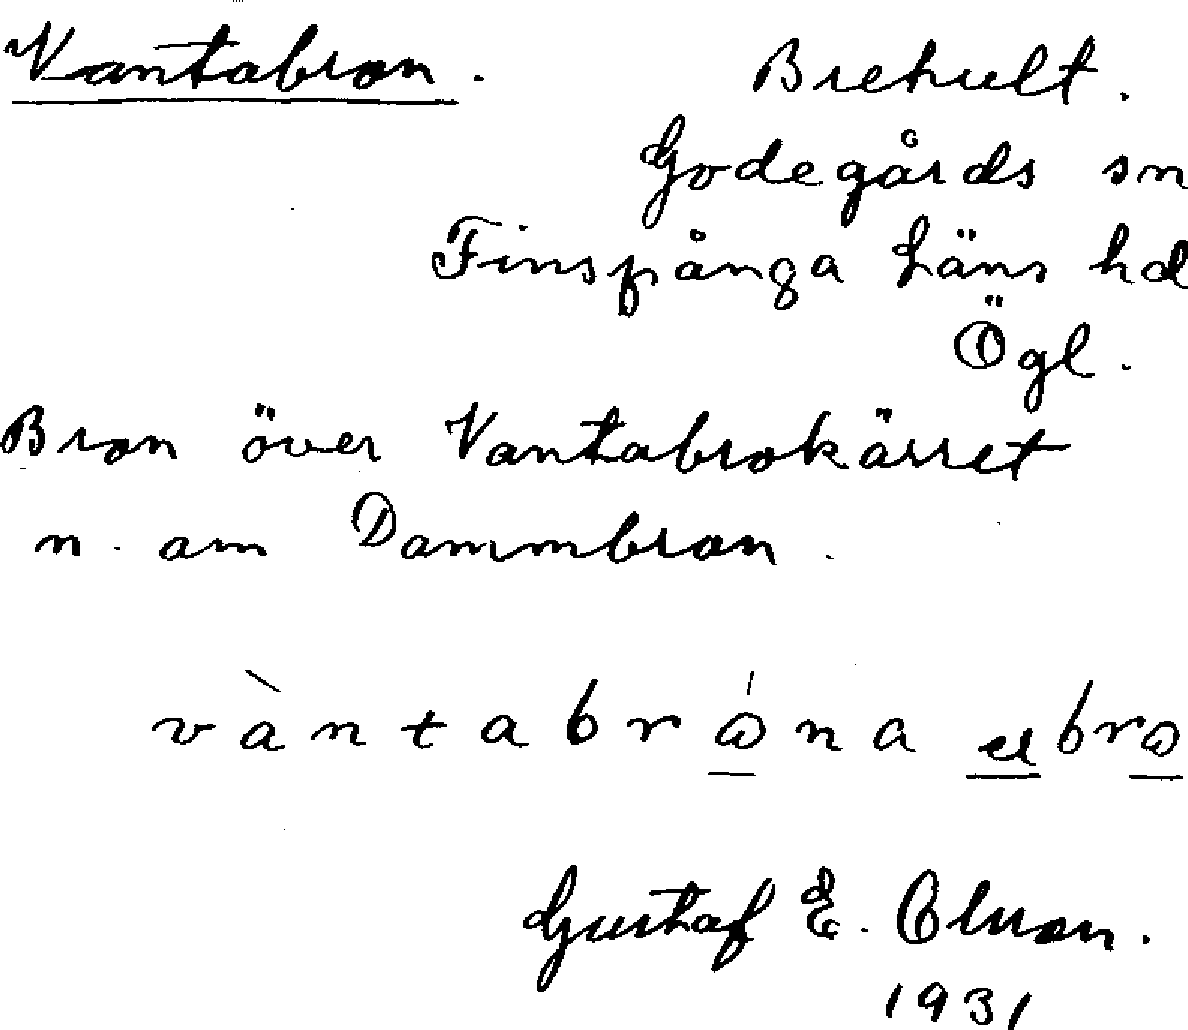 Vantabron.
Brehult.
Godegårds sn
Finspånga läns hd
Ögl.
Bron över Vantabrokärret
n. om Dammbron.
vàntabrona
Gustaf E. Olsson.
1931